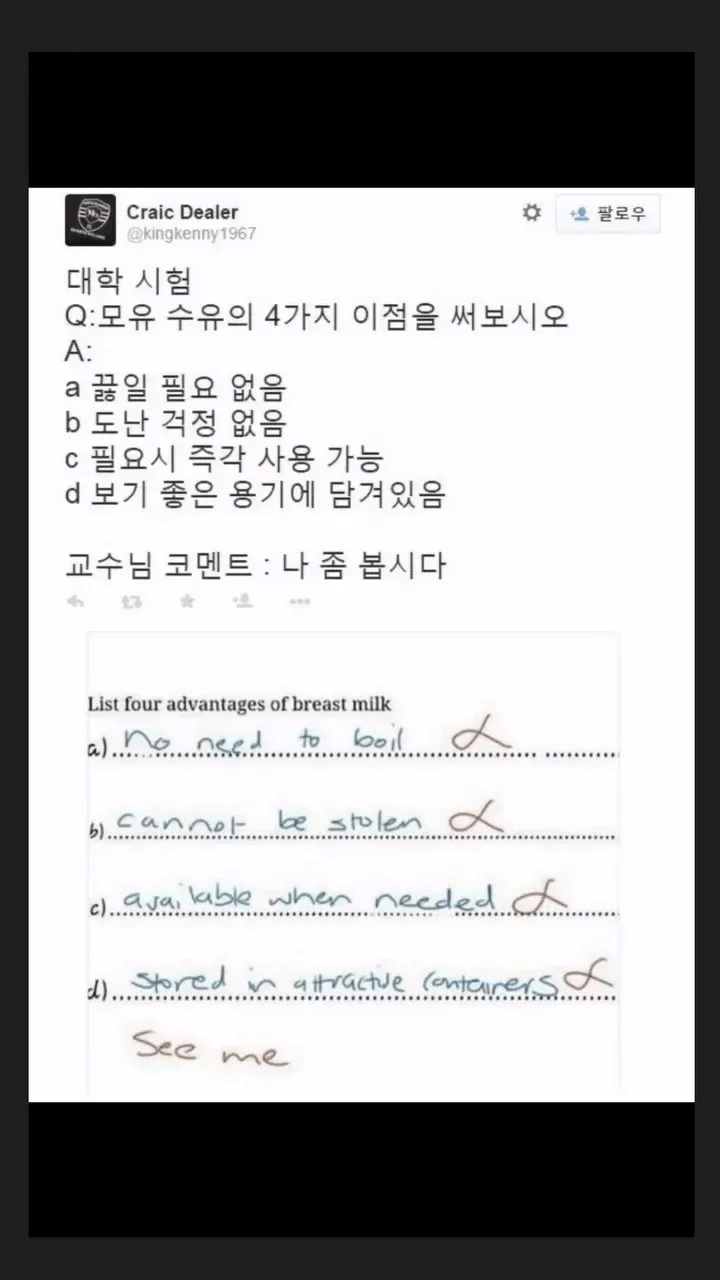 Craic Dealer
@kingkenny1967
팔로우
대학 시험
Q:모유 수유의 4가지 이점을 써보시오
A:
a 끓일 필요 없음
b 도난 걱정 없음
c 필요시 즉각 사용 가능
d 보기 좋은 용기에 담겨있음
교수님 코멘트 : 나 좀 봅시다
List four advantages of breast milk
a) no need to boil
b) cannot be stolen
c) available when needed
d) stored in attractive containers
See me